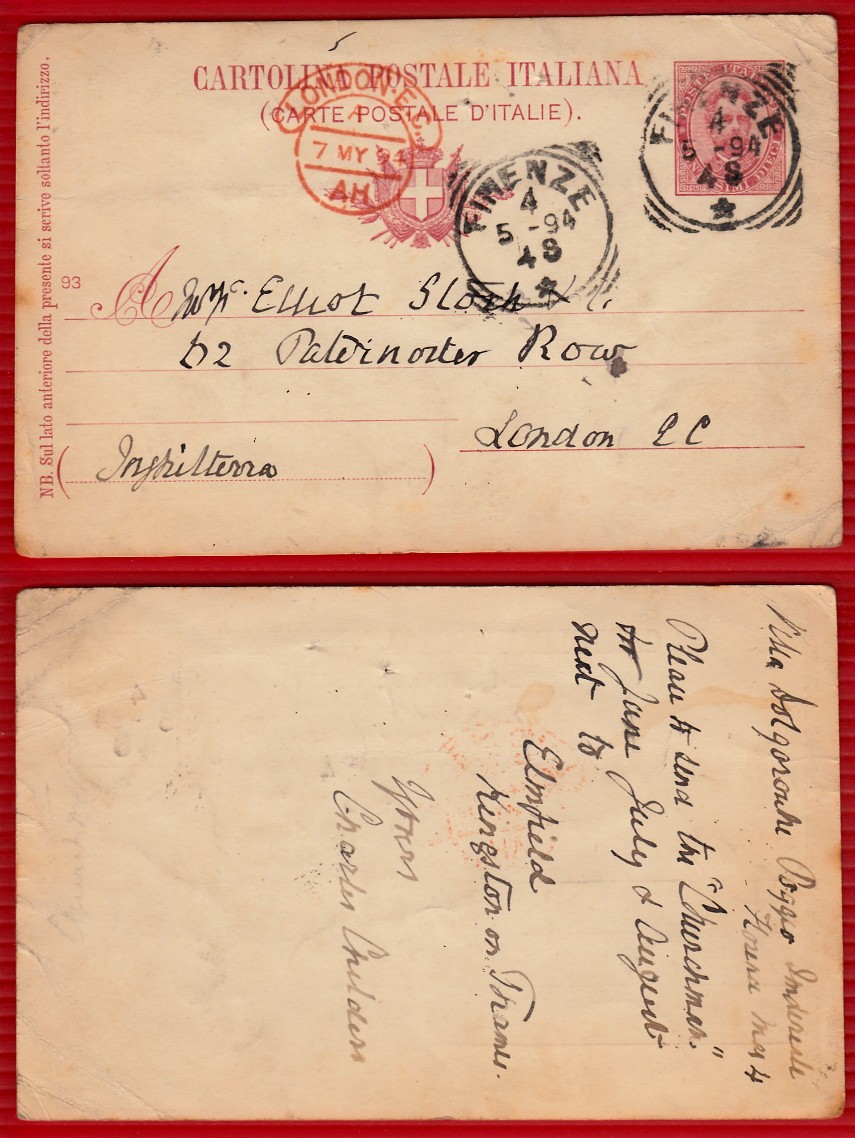 5
CARTOLINA POSTALE ITALIANA
(CARTE POSTALE D'ITALIE).
LONDON·E.C.
A
7 MY 94
AH
FIRENZE
4
5 -94
4 S
FIRENZE
4
5 -94
4 S
POSTE ITALIANE
CENTESIMI DIECI
NB. Sul lato anteriore della presente si scrive soltanto l'indirizzo.
93
A Mr. Elliot Stock
62 Paternoster Row
London EC
(Inghilterra)
Villa Dolgorouki Poggio Imperiale
Florence May 4
Please to send the "Churchman"
for June July & August
next to
Elmfield
Kingston on Thames.
Yours
Charles Childers